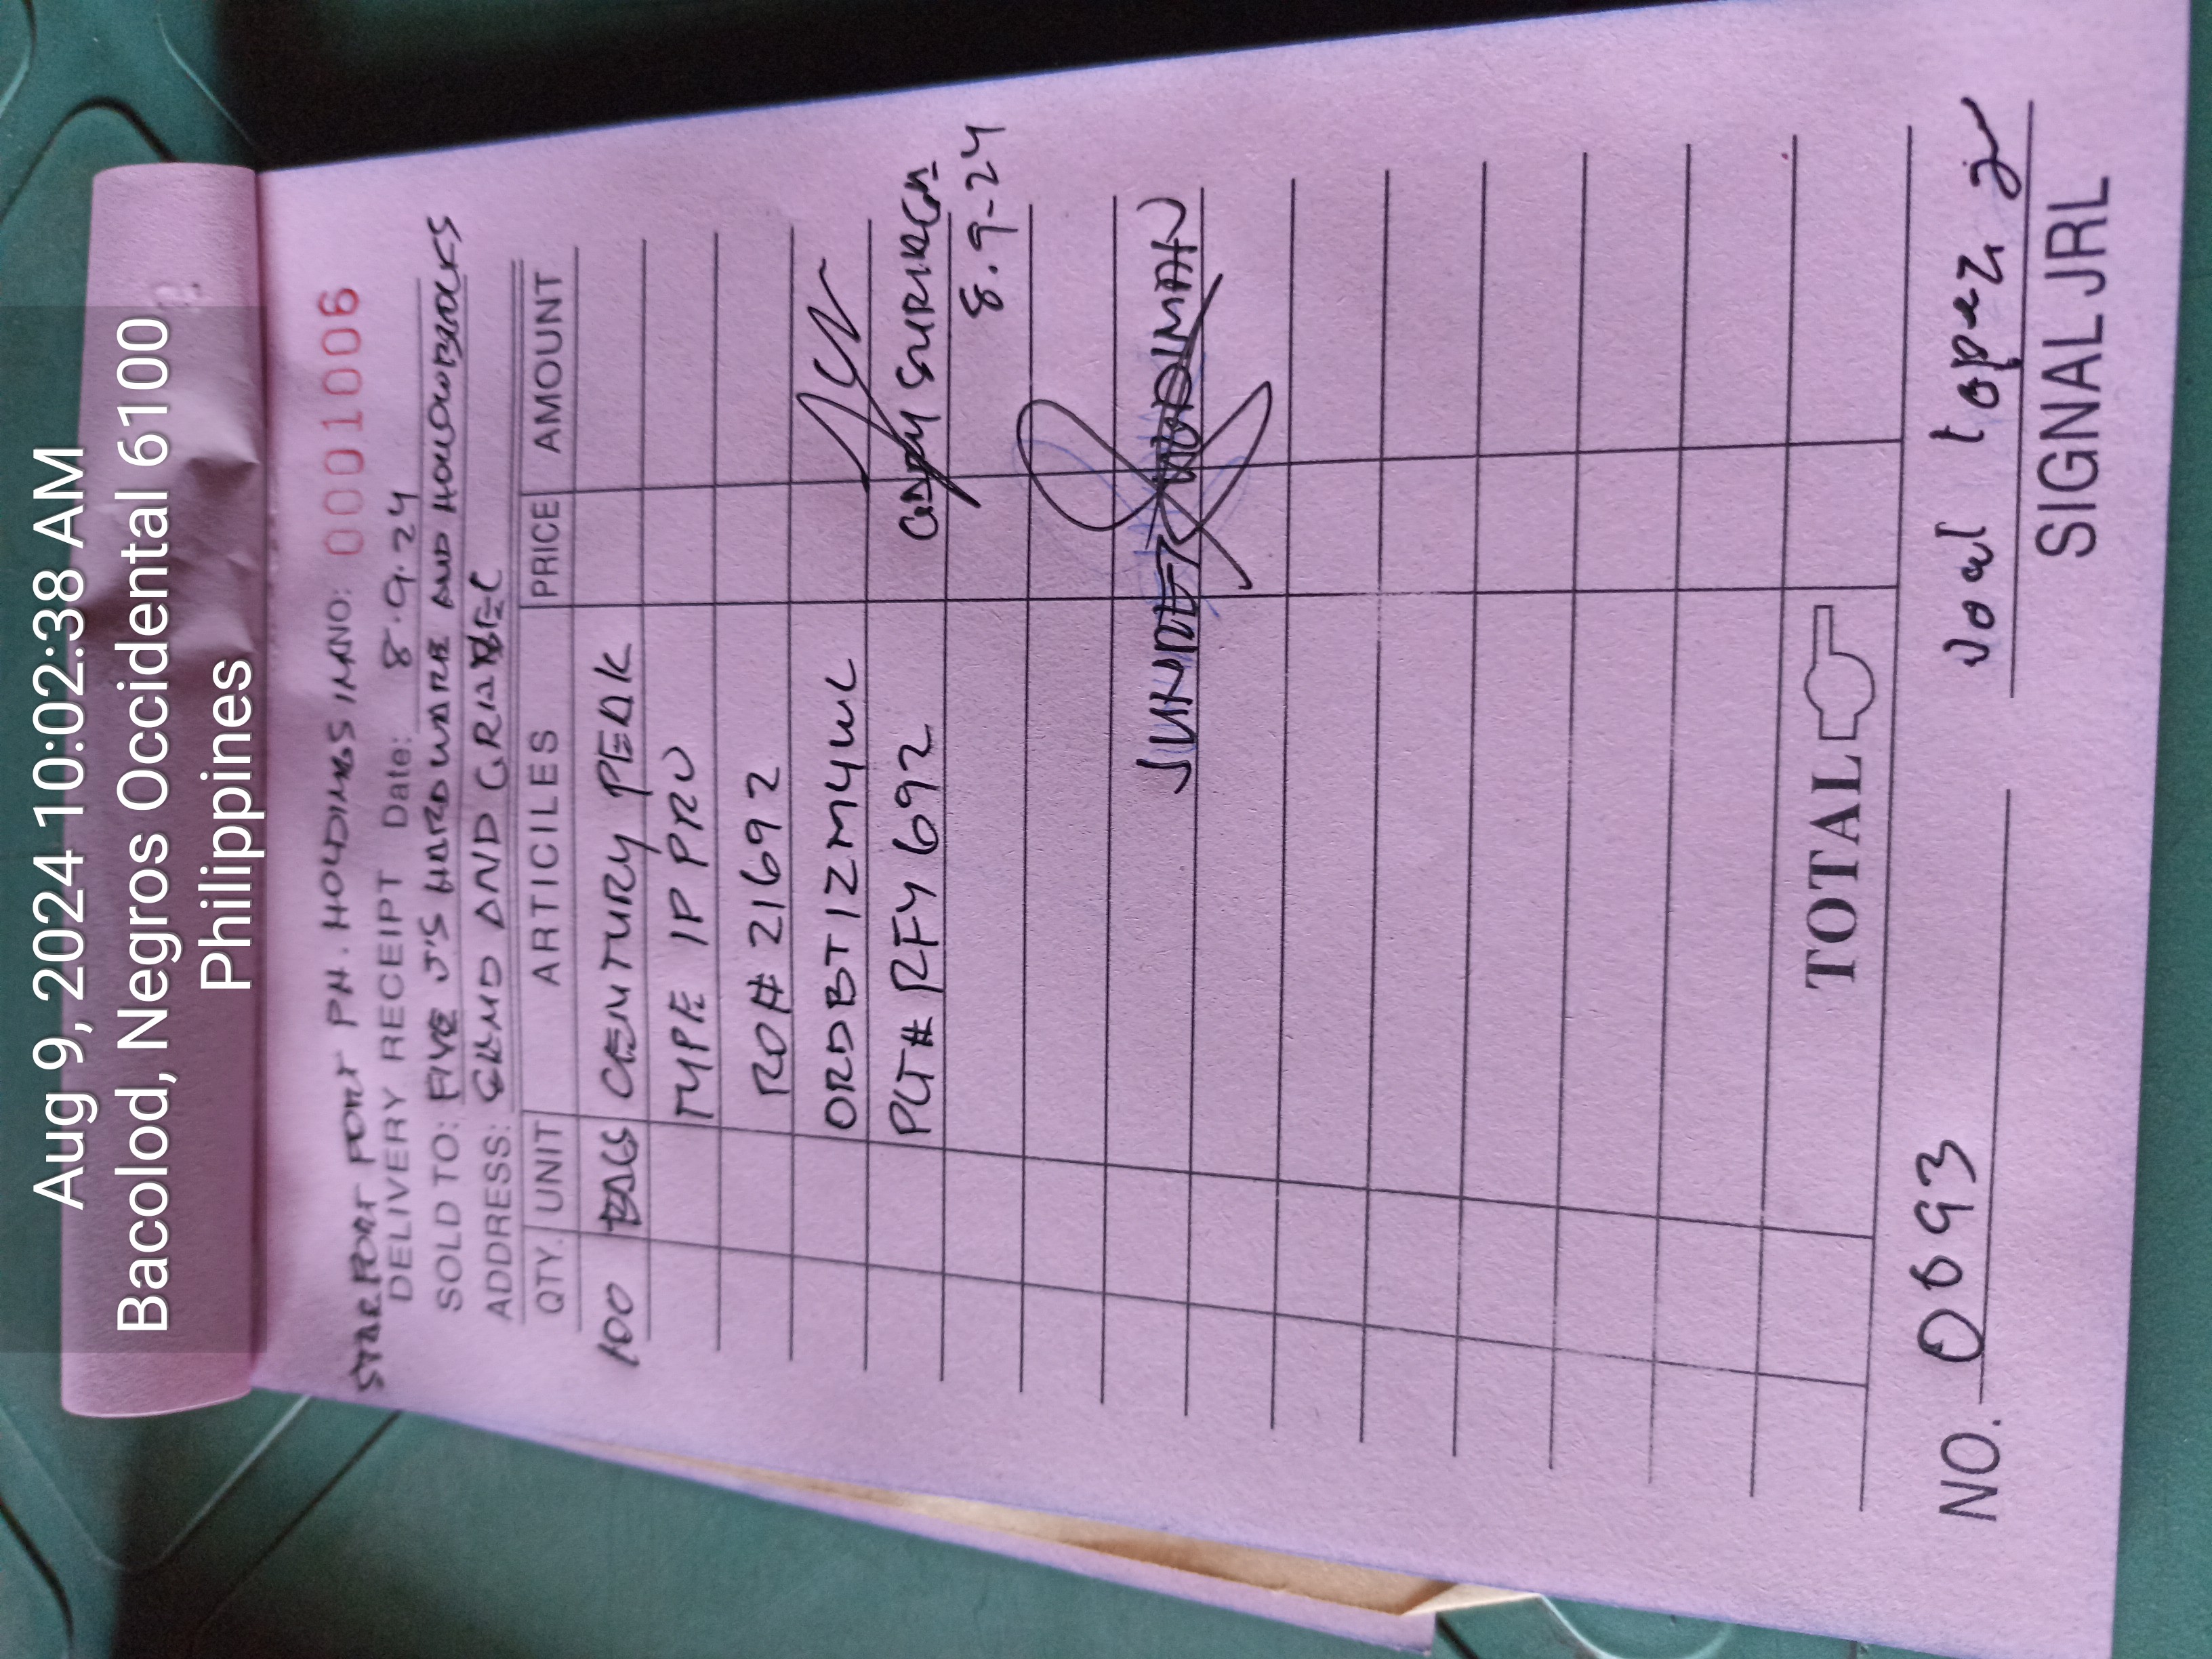 Aug 9, 2024 10:02:38 AM
Bacolod, Negros Occidental 6100
Philippines
STARPORT PORT PH. HOLDINGS INC NO: 0001006
DELIVERY RECEIPT Date: 8.9.24
SOLD TO: FIVE J'S HARDWARE AND HOLLOWBLOCKS
ADDRESS: SAND AND GRAVEL
QTY. UNIT ARTICILES PRICE AMOUNT
100 BAGS CENTURY PEAK
TYPE 1P PRO
RO# 21692
ORDBT1ZM4WL
PLT# RFY 692
8.9-24
JUNDEE
TOTAL
NO. 0693
SIGNAL JRL